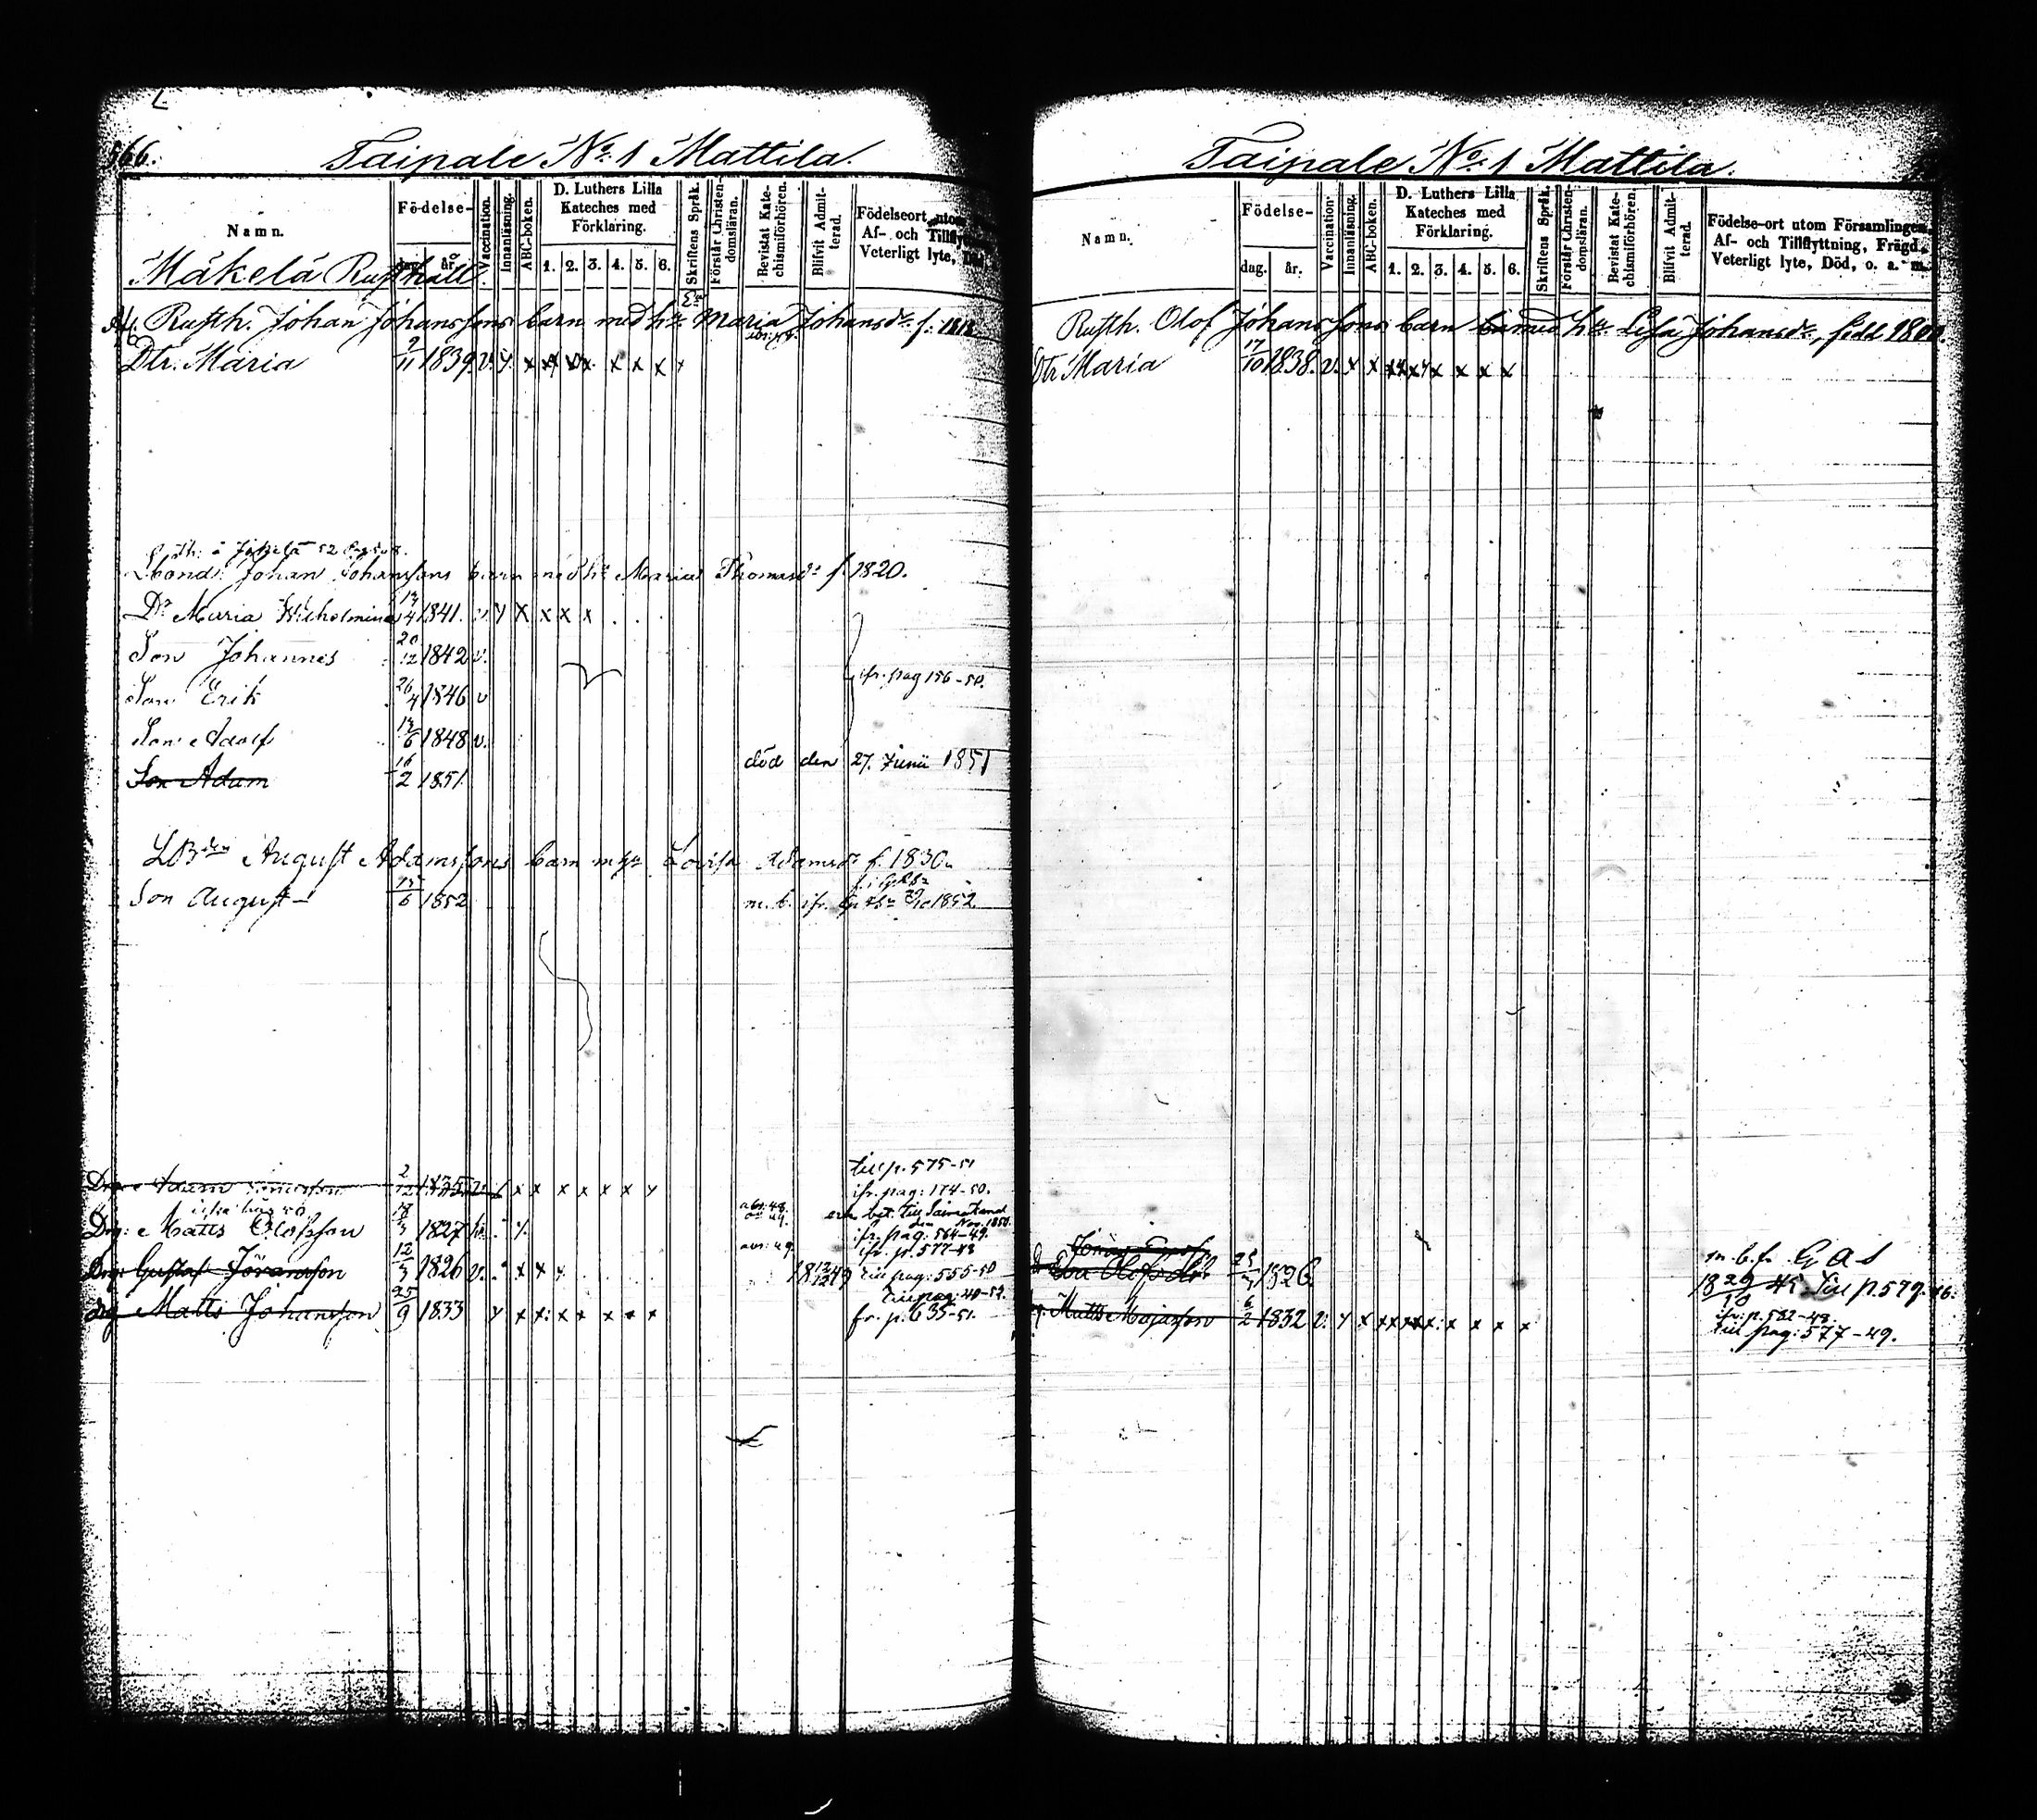 566.
Taipale No. 1 Mattila.
Namn.
Födelse-
dag. år.
Vaccination.
Innanläsning.
ABC-boken.
D. Luthers Lilla Kateches med Förklaring.
1. 2. 3. 4. 5. 6.
Skriftens Språk.
Förstår Christendomsläran.
Bevistat Katechismiförhören.
Blifvit Admitterad.
Födelseort utom
Af- och Tillflyttn
Veterligt lyte, Död,
Mäkelä Rusthåll.
Rusth. Johan Johanssons barn med hu Maria Johansdr f. 1818.
Dtr. Maria 2/11 1839. v. y. x x x x x x x
Johan Johanssons barn med hu Maria Thomasdr f. 1820.
Dr Maria Wilhelmina 13/4 1841. v y x x x x
Son Johannes 20/12 1842 v.
Son Erik 26/4 1846 v
ifr. pag 156-50.
Son Adolf 13/6 1848 v.
Son Adam 16/2 1851. död den 27. Junii 1851
August Adamssons barn m hu Lovisa Adamsdr f. 1830.
Son August 15/6 1852 m. b. ifr. 1852.
till p. 575-51
Adam 2/12 1835 v. x x x x x x y
ifr. pag: 174-50.
Drg: Matts Olofsson 18/3 1827 Nov. 1850.
ifr. pag. 564-49.
ifr. p. 577-48
Drg: Gustaf Göransson 12/3 1826 v. x x y 18 12/12 49 till pag: 555-50
till pag: 40-52.
drg Matts Johansson 25/9 1833 y x x x x x x x fr. p. 635-51.
Taipale No. 1 Mattila.
Namn.
Födelse-
dag. år.
Vaccination.
Innanläsning.
ABC-boken.
D. Luthers Lilla Kateches med Förklaring.
1. 2. 3. 4. 5. 6.
Skriftens Språk.
Förstår Christendomsläran.
Bevistat Katechismiförhören.
Blifvit Admitterad.
Födelse-ort utom Församlingen,
Af- och Tillflyttning, Frägd,
Veterligt lyte, Död, o. a. m.
Rusth. Olof Johanssons barn med hu Lisa Johansdr, född 1800.
Dtr Maria 17/10 1838. v. x x x x x x x x
Eva Olofsdr 1826. m. b. fr.
till p. 579-46.
Matts 6/2 1832 v. y x x x x x x x
ifr. p. 582-48.
till pag: 577-49.